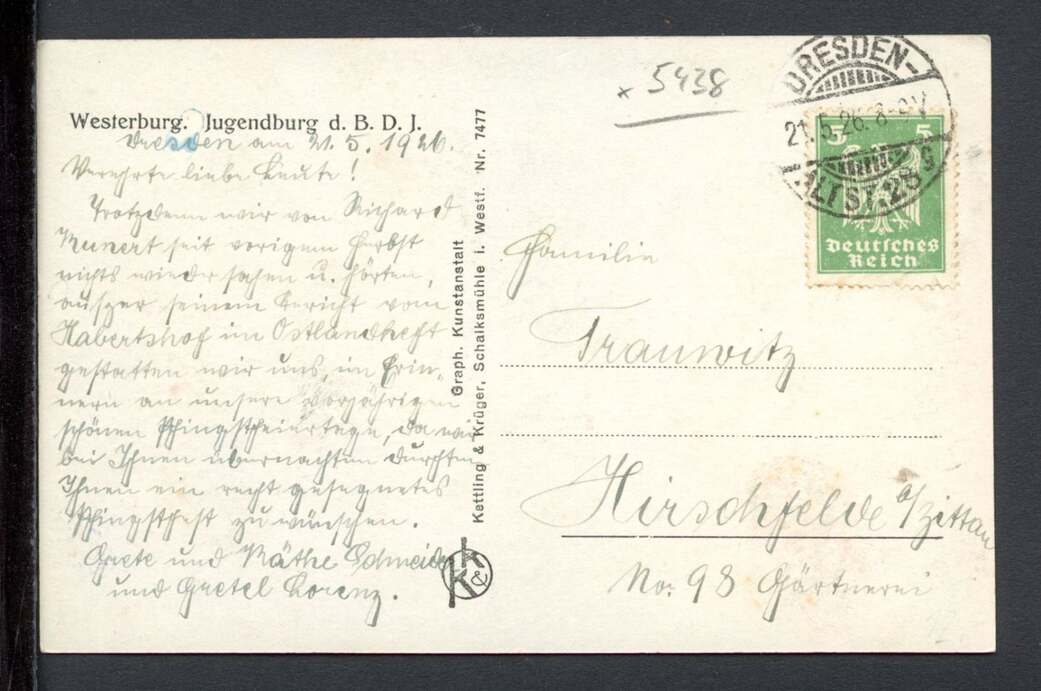 Westerburg. Jugendburg d. B. D. J.
Dresden am 21. 5. 1926.
Verehrte liebe Leute!
Trotzdem wir von Richard
Kunert seit vorigem Herbst
nichts wieder sahen u. hörten,
auszer seinem Bericht vom
Habertshof im Ostlandheft
gestatten wir uns, im Erin-
nern an unsere vorjährigen
schönen Pfingstfeiertage, da wir
bei Ihnen übernachten durften
Ihnen ein recht gesegnetes
Pfingstfest zu wünschen.
Grete und Käthe Schneider
und Gretel Lorenz.
Graph. Kunstanstalt
Kettling & Krüger, Schalksmühle i. Westf. Nr. 7477
K & K
x 5438
DRESDEN-
21.5.26. 8-9V
ALTST. 28
5 5
Deutsches
Reich
Familie
Trauwitz
Hirschfelde a/Zittau
No. 98 Gärtnerei